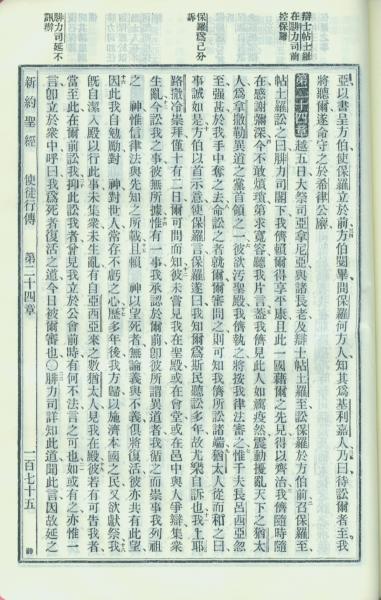 辯士帖土羅
在腓力司前
控保羅
保羅爲己分
訴
腓力司延不
訊辦
亞以書呈方伯使保羅立於前方伯閱畢問保羅何方人知其爲基利嘉人乃曰待訟爾者至我
將聽爾遂命守之於希律公廨
第二十四章 越五日大祭司亞拿尼亞與諸長老及辯士帖土羅至訟保羅於方伯前召保羅至
帖土羅訟之曰腓力司閣下我儕賴爾得享平康且此一國藉爾之先見得以齊治我儕隨時隨
在感謝彌深今不敢煩瀆第求寬容聽我片言蓋我儕見此人如癘疫然震動擾亂天下之猶太
人爲拿撒勒異道之黨首領之一彼欲污聖殿我儕執之將按我律法審之惟千夫長呂西亞忽
至强甚於我手中奪之去命訟之者就爾爾審問之則可知我儕所訟諸端猶太人從而和之曰
事誠如是方伯以首示意使保羅言保羅遂曰我知爾爲斯民聽訟多年故尤樂自訴也我上耶
路撒冷崇拜僅十有二日爾可問而知彼未嘗見我在聖殿或在會堂或在邑中與人爭辯集衆
生亂今訟我之事彼無所據惟有一事我承認於爾前卽彼所謂異道者我循之而崇事我列祖
之 神惟信律法與先知之所載且賴 神以望死者無論義與不義俱將復活彼亦共有此望
因此我自勉勵對 神對世人常存不虧之心歷多年後我方歸以施濟本國之民又欲獻祭我
旣自潔入殿以行此事未集衆未生亂有自亞西亞來之數猶太人見我在殿彼若有可告我者
當至此在爾前訟我抑此訟我者曾見我立於公會前時有何不法言之可也如或有之亦惟一
言卽立於衆中呼曰我爲死者復活之道今日被爾審也〇腓力司詳知此道聞此言因故延之
新約聖經 使徒行傳 第二十四章 一百七十五